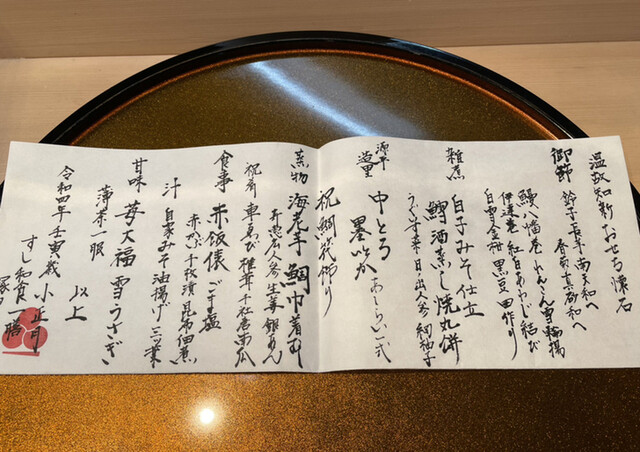 温故知新 おせち懐石
御節 鈴子 長芋 南天和へ
春菊 真砂和へ
鰻八幡巻 れんこん 車輪揚
伊達巻 紅白あわじ結び
白雪金柑 黒豆 田作り
雑煮 白子みそ仕立
鱈酒蒸し 焼丸餅
うぐいす菜 日の出人参 細柚子
造里 中とろ
墨いか あしらい一式
祝鯛 飾り
蒸物 海老芋 鯛巾着むし
人参 生姜 銀あん
祝肴 車えび 椎茸 千社唐 南瓜
食事 赤飯俵 ごま塩
赤かぶ 千枚漬 昆布佃煮
汁 自家みそ 油揚げ 三ツ葉
甘味 苺大福 雪うさぎ
薄茶一服
以上
令和四年 壬寅歳 小正月
すし和食 一勝